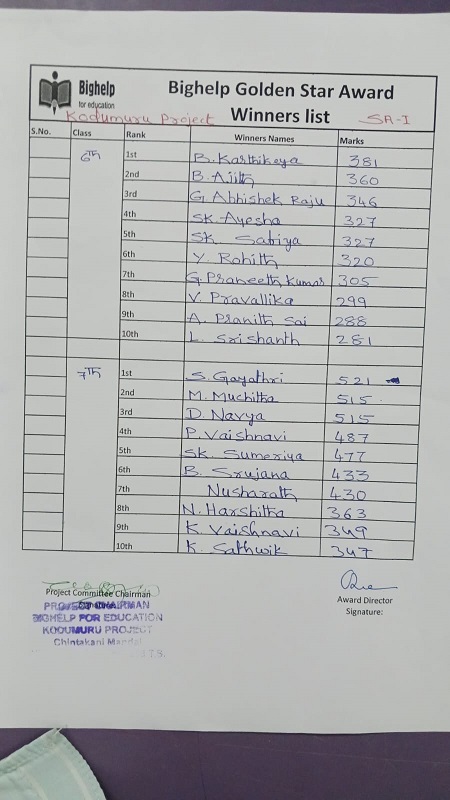 Bighelp
for education
Bighelp Golden Star Award
Kodumuru Project Winners list SA-I
S.No. Class Rank Winners Names Marks
6th 1st B. Karthikeya 381
2nd B. Ajith 360
3rd G. Abhishek Raju 346
4th SK. Ayesha 327
5th SK. Sabiya 327
6th Y. Rohith 320
7th G. Praneeth Kumar 305
8th V. Pravallika 299
9th A. Pranith Sai 288
10th L. Srishanth 281
7th 1st S. Gayathri 521
2nd M. Muchitha 515
3rd D. Navya 515
4th P. Vaishnavi 487
5th SK. Sumeriya 477
6th B. Srujana 433
7th Nusharath 430
8th N. Harshitha 363
9th K. Vaishnavi 349
10th K. Sathwik 347
Project Committee Chairman
CHAIRMAN
BIGHELP FOR EDUCATION
KODUMURU PROJECT
Chintakani Mandal
T.S.
Award Director
Signature: